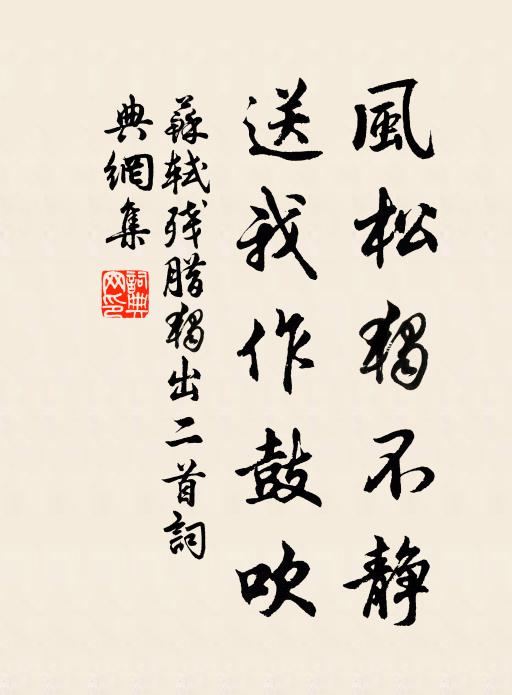 風松獨不静
送我作鼓吹
蘇軾殘腊獨出二首詞
典網集
詞典
网印